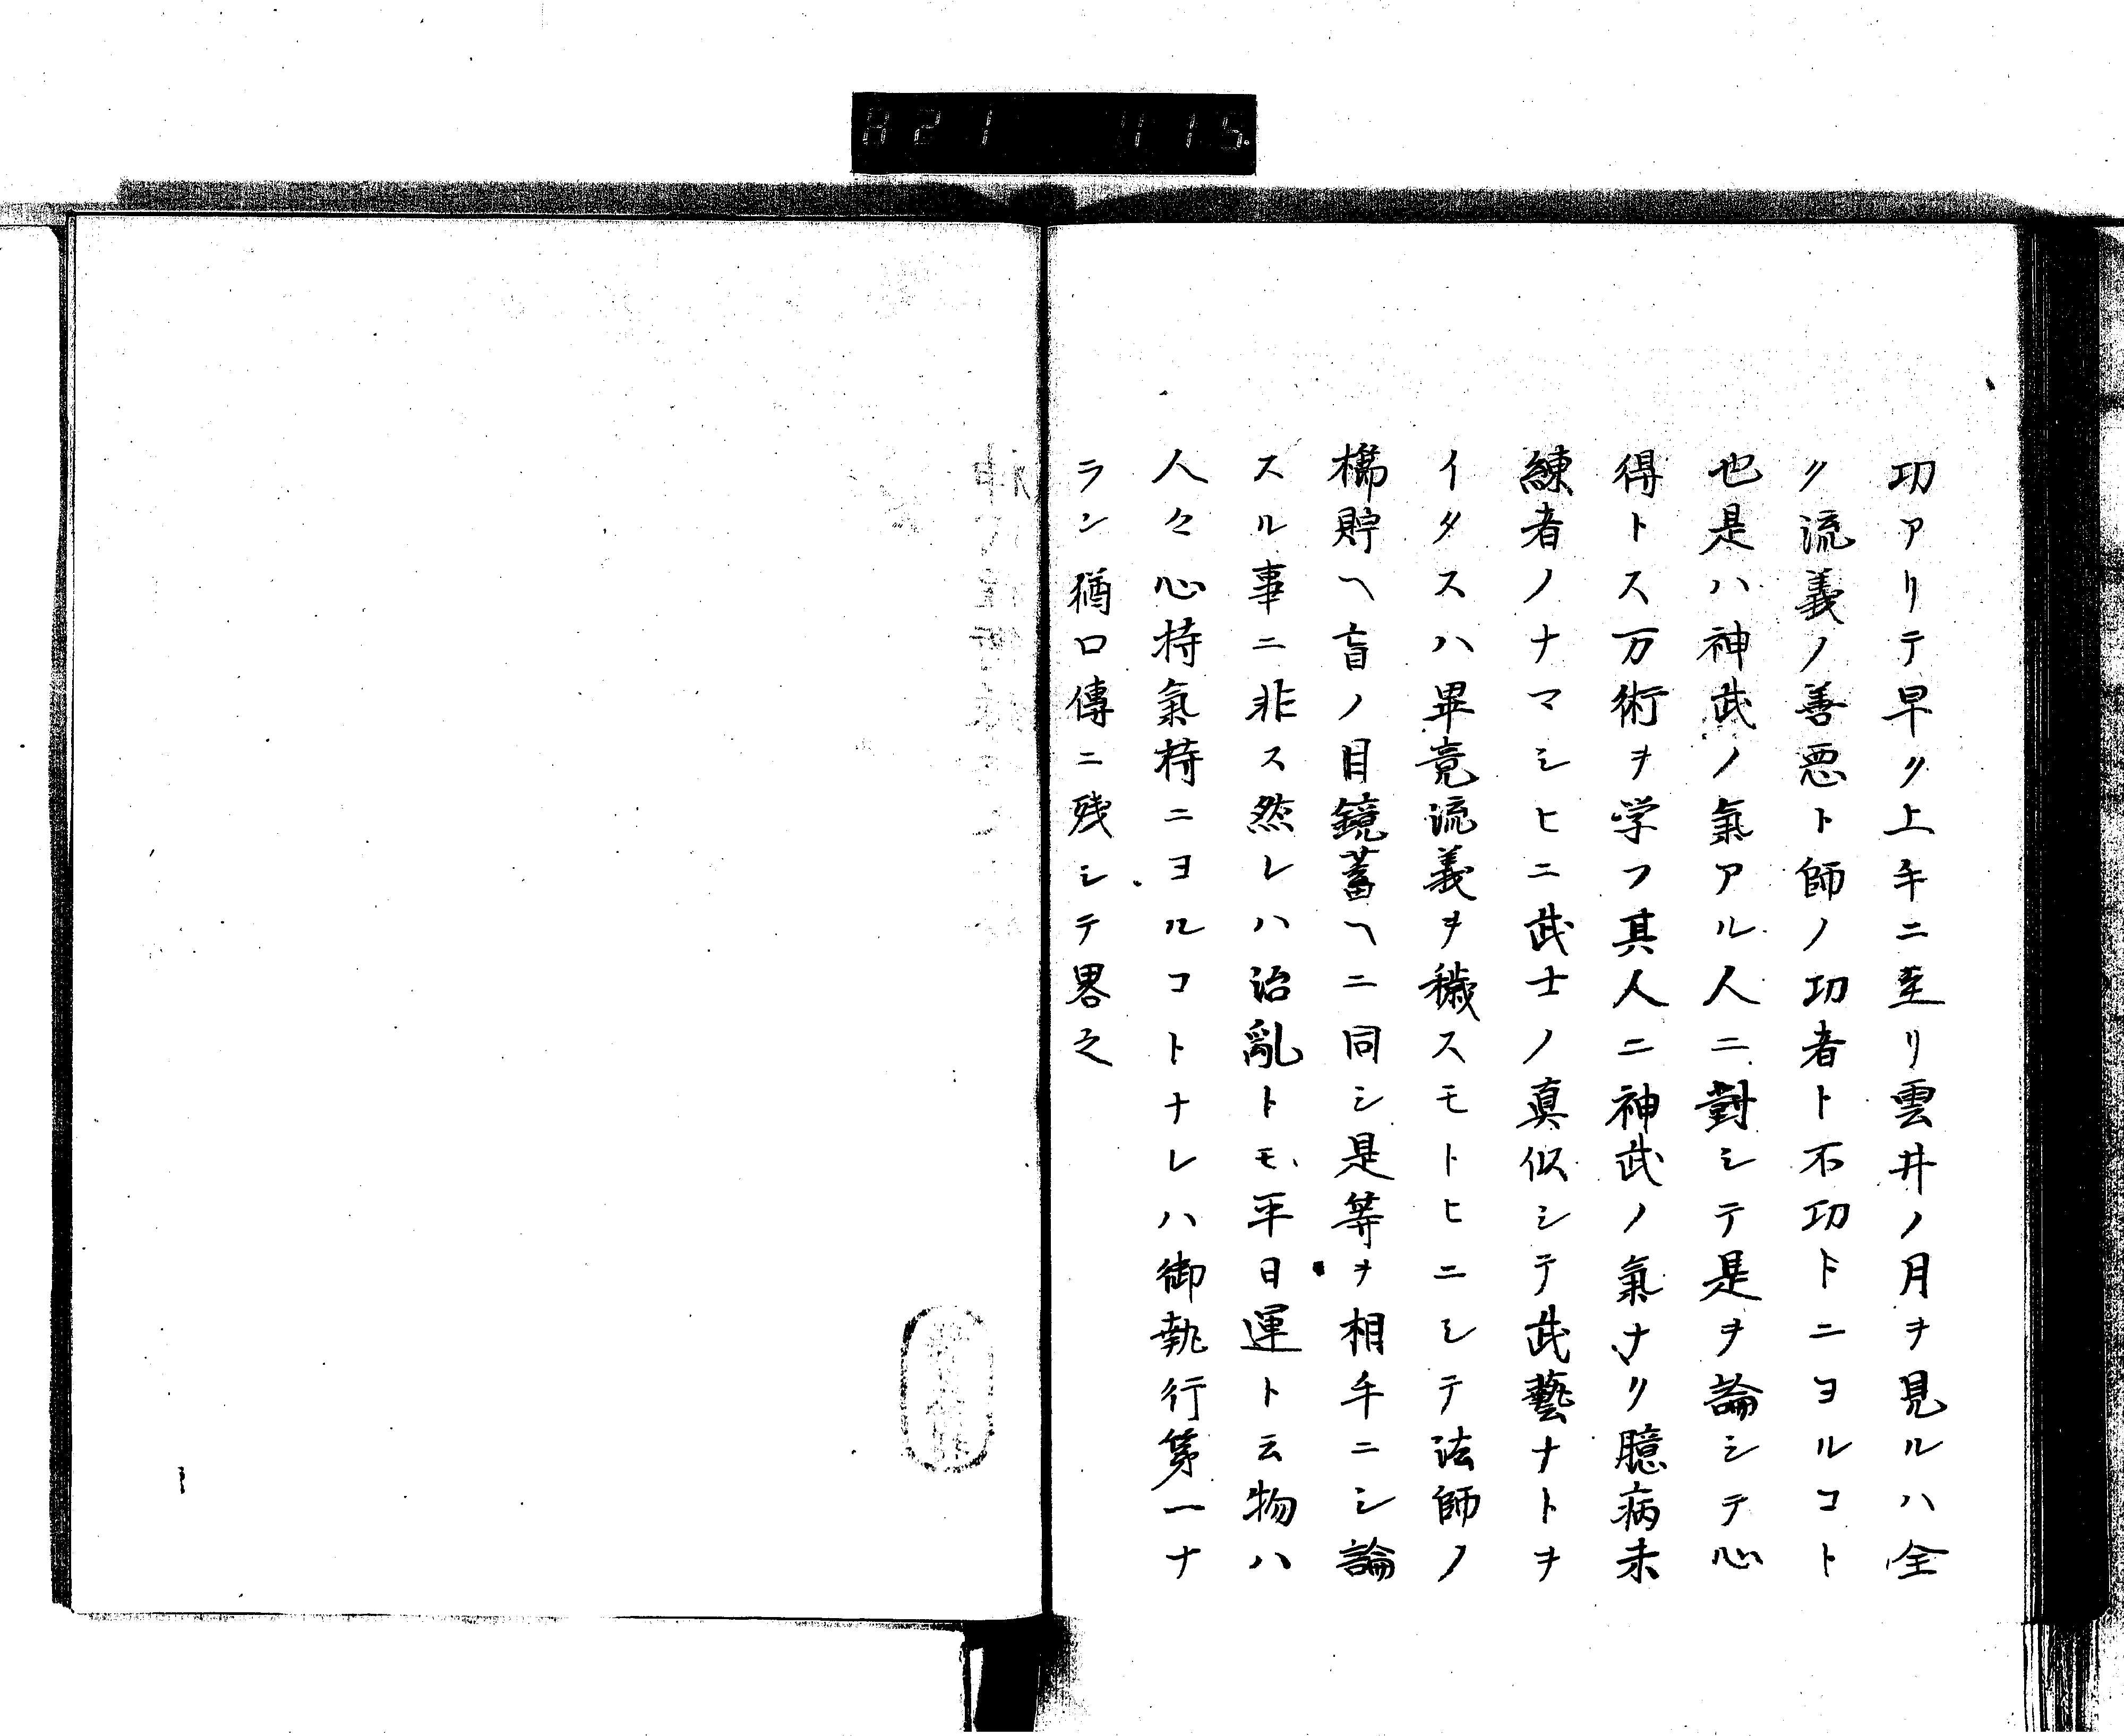 821 115.
功アリテ早ク上手ニ至リ雲井ノ月ヲ見ルハ全
ク流義ノ善悪ト師ノ功者ト不功トニヨルコト
也是ハ神武ノ氣アル人ニ對シテ是ヲ論シテ心
得トス万術ヲ学フ其人ニ神武ノ氣ナク臆病未
練者ノナマシヒニ武士ノ真似シテ武藝ナトヲ
イタスハ畢竟流義ヲ穢スモトヒニシテ法師ノ
櫛貯ヘ盲ノ目鏡蓄ヘニ同シ是等ヲ相手ニシ論
スル事ニ非ス然レハ治亂トモ平日運ト云物ハ
人々心持氣持ニヨルコトナレハ御執行第一ナ
ラン猶口傳ニ残シテ畧之